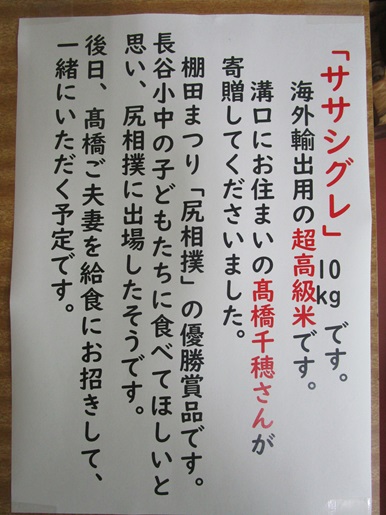 「ササシグレ」10kgです。
海外輸出用の超高級米です。
溝口にお住まいの髙橋千穂さんが
寄贈してくださいました。
棚田まつり「尻相撲」の優勝賞品です。
長谷小中の子どもたちに食べてほしいと
思い、尻相撲に出場したそうです。
後日、髙橋ご夫妻を給食にお招きして、
一緒にいただく予定です。